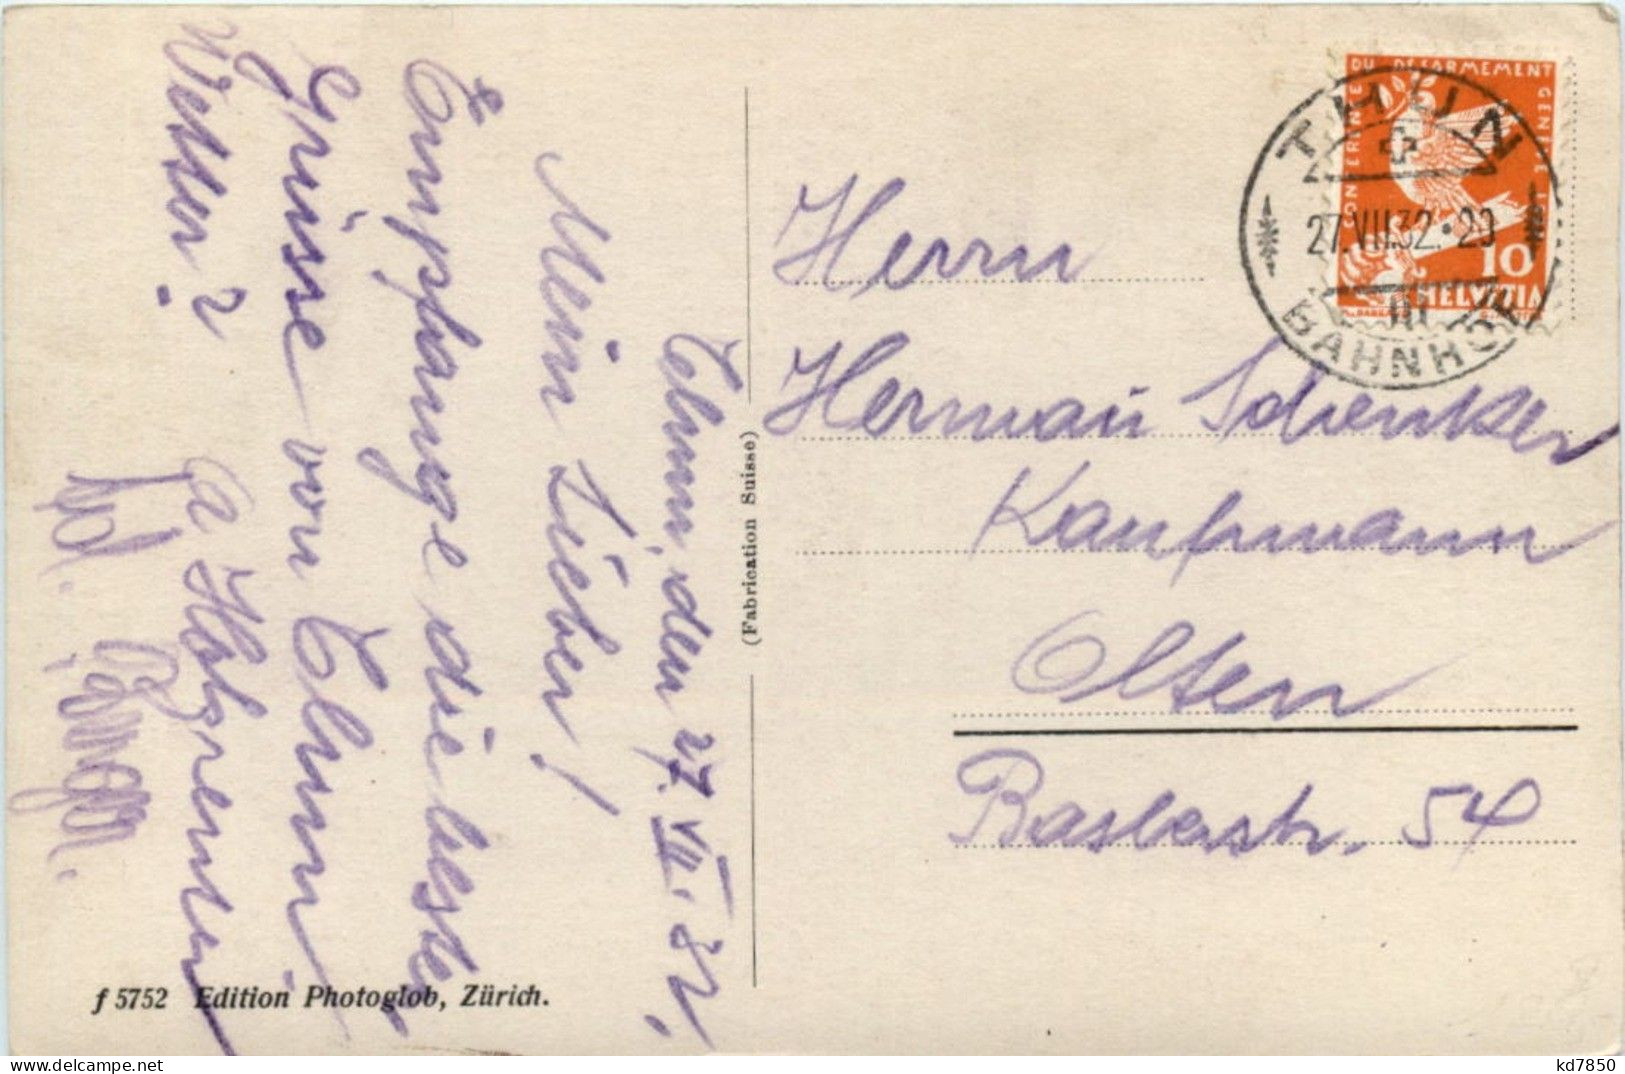 Thun, den 27. VII. 32.
Mein Lieber!
Empfange die besten
Grüsse von Thun
Wetter?
f 5752 Edition Photoglob, Zürich.
(Fabrication Suisse)
CONFERENCE DU DESARMEMENT GENEVE
10
HELVETIA
THUN
27.VII.32.-20
BAHNHOF
Herrn
Herman Schenker
Kaufmann
Olten
Baslerstr. 54
www.delcampe.net
kd7850